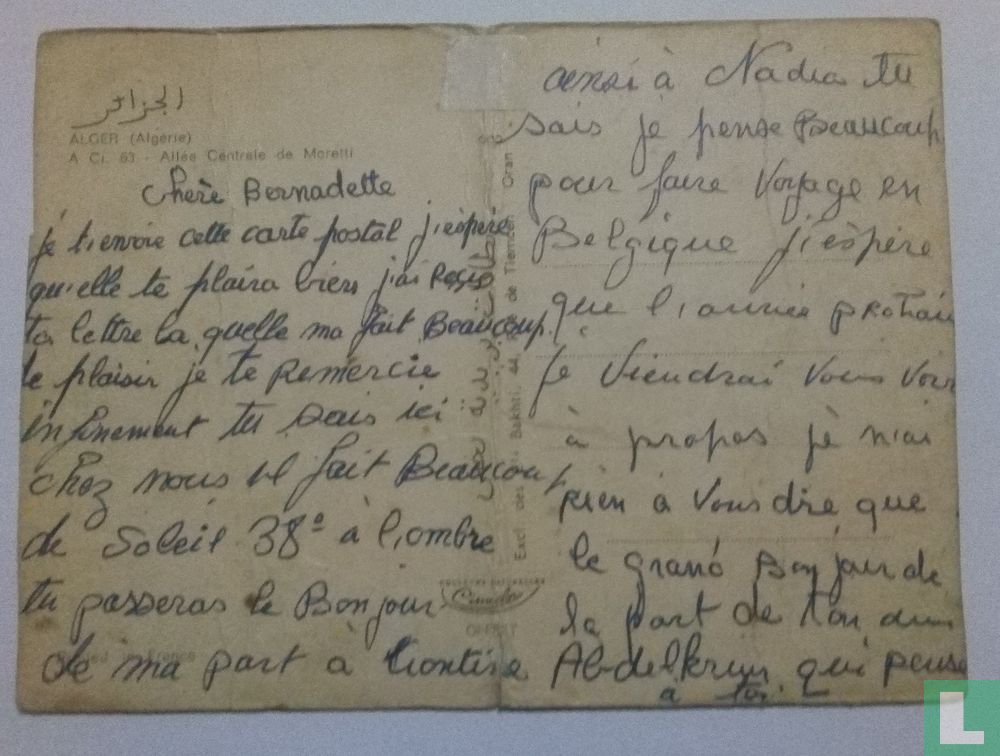 الجزائر
ALGER (Algérie)
A Ci. 63 - Allée Centrale de Moretti
Chère Bernadette
je t'envoie cette carte postal j'éspère
qu'elle te plaira bien j'ai Reçu
ta lettre la quelle ma fait Beaucoup
de plaisir je te Remercie
infinement tu sais ici
chez nous il fait Beaucoup
de Soleil 38° à l'ombre
tu passeras le Bonjour
de ma part à
ainsi à Nadia tu
sais je pense Beaucoup
pour faire Voyage en
Belgique j'éspère
que l'année
je Viendrai Vous Voir
à propos je n'ai
rien à Vous dire que
le grand Bonjour de
la part de ton ami
Abdelkrim qui pense
à toi
Bakhti. 44, de Tlemcen Oran